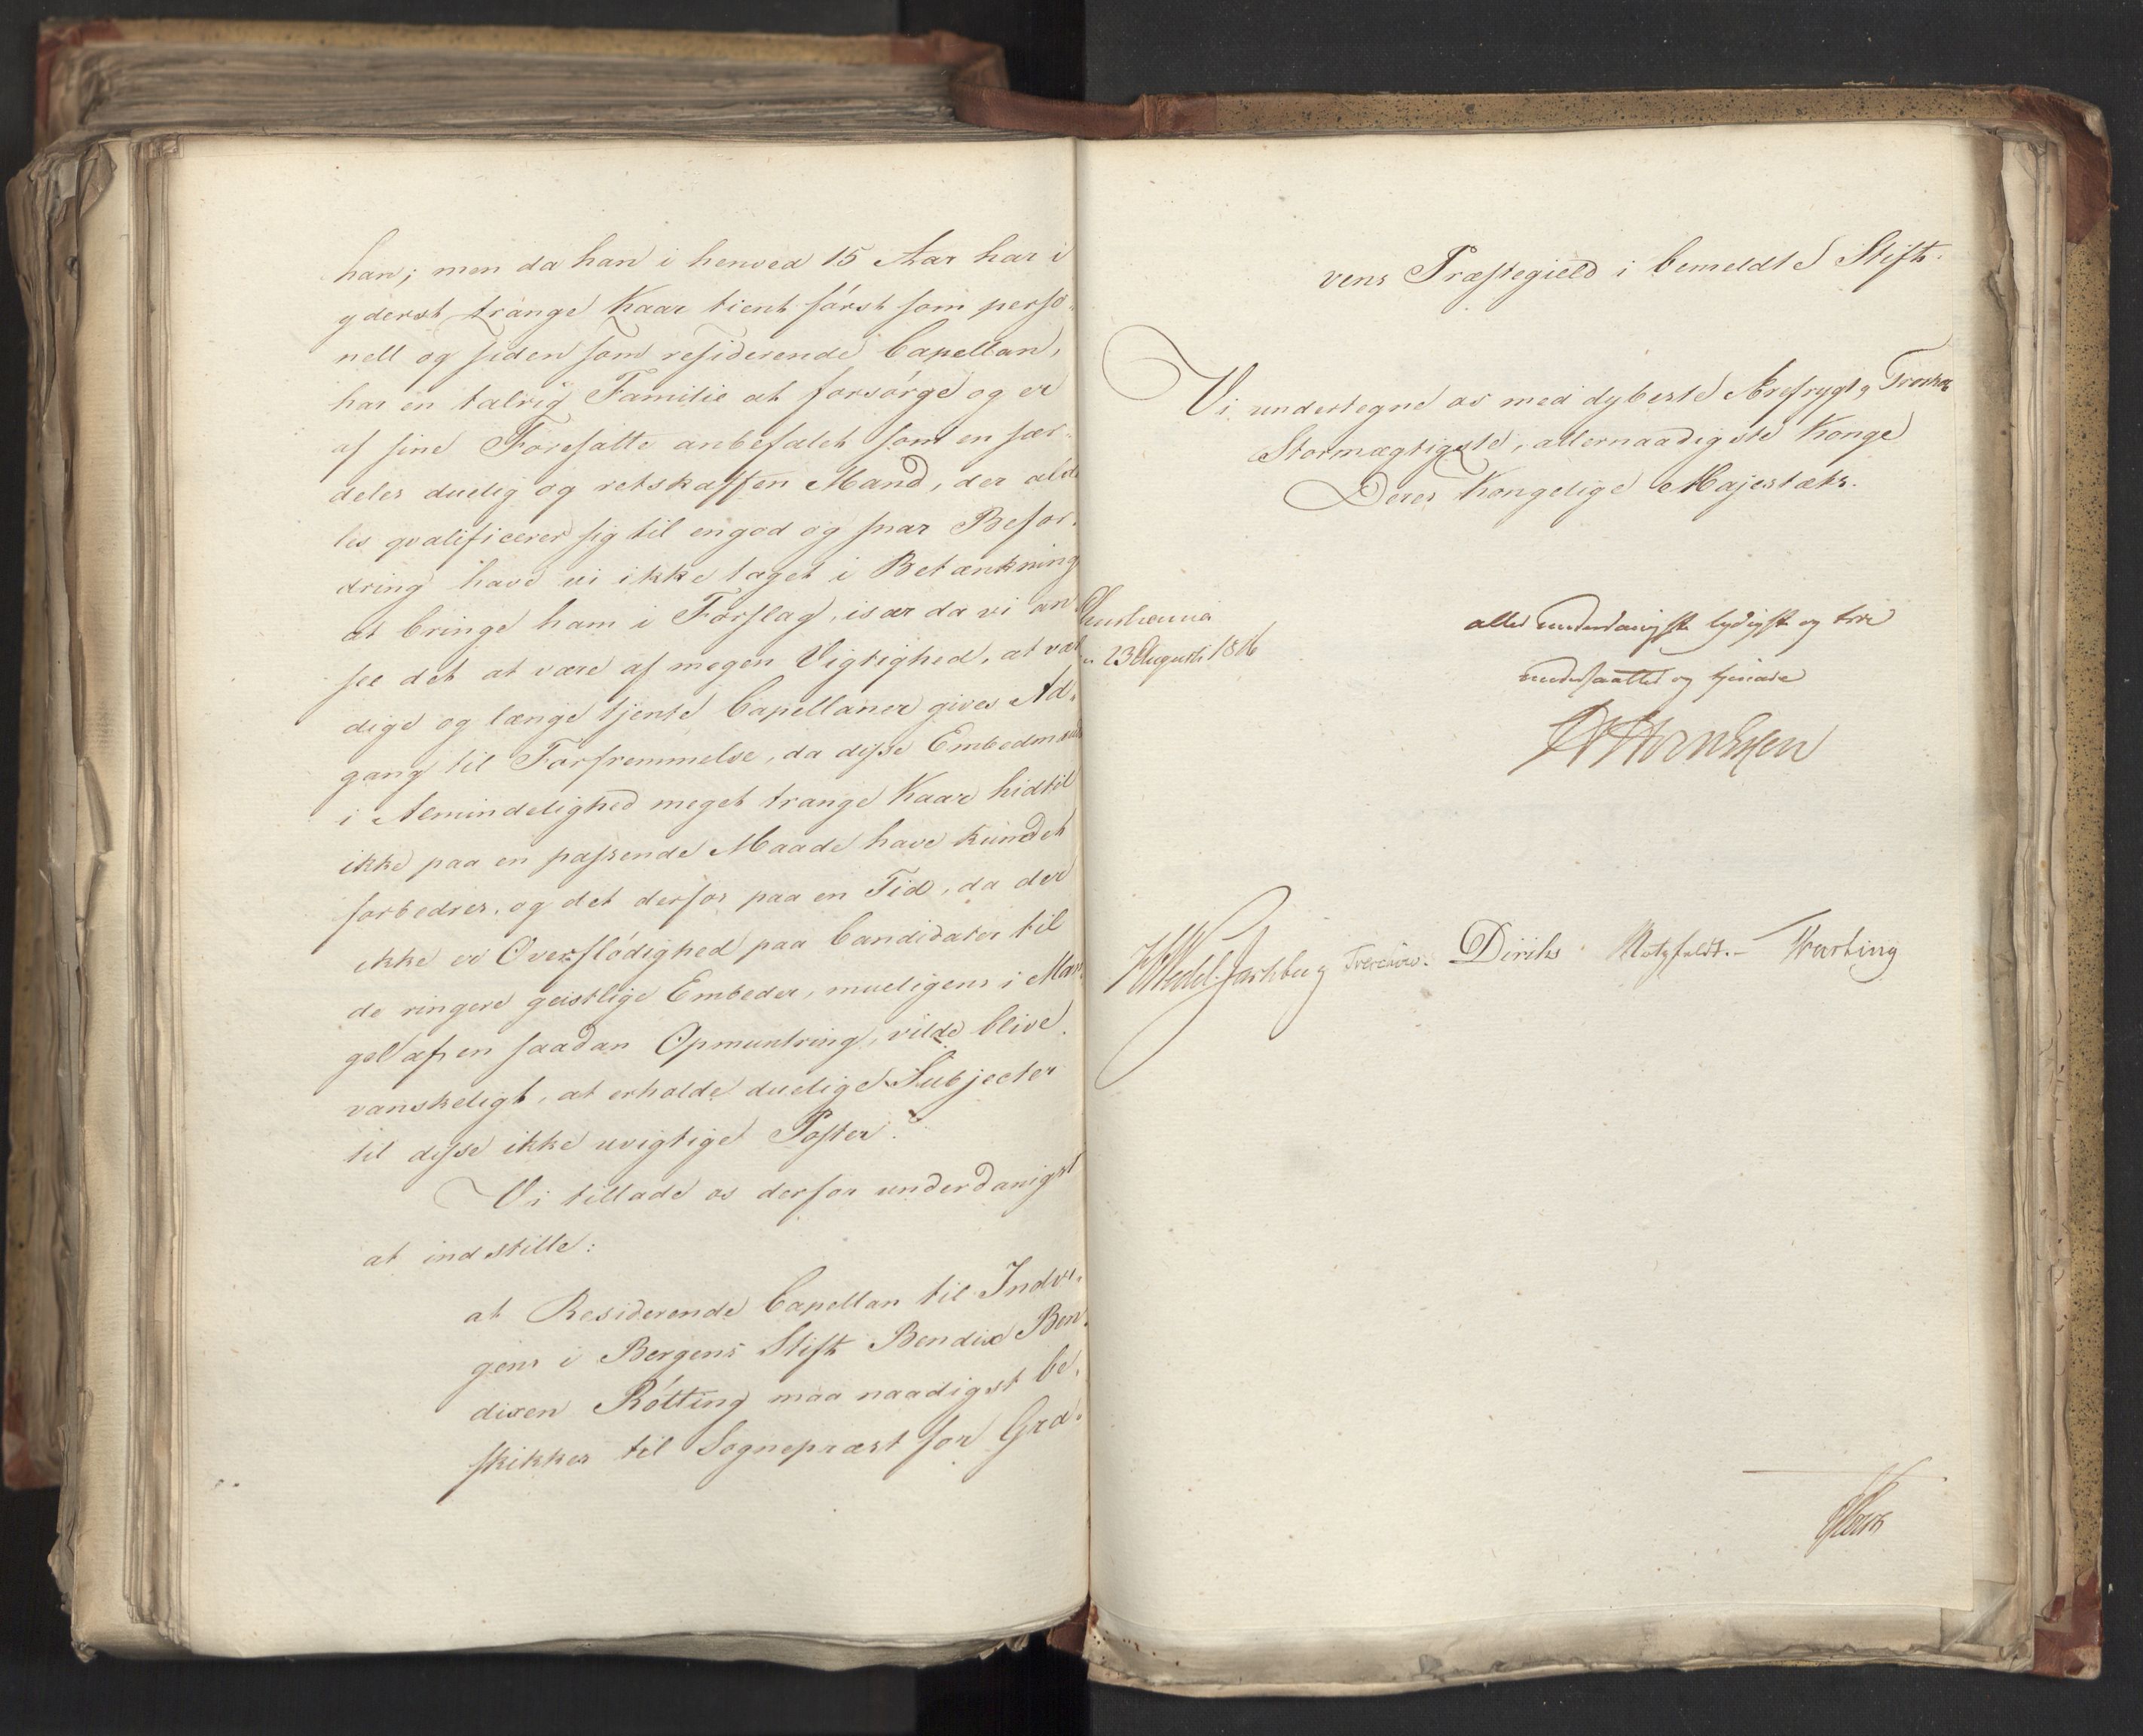 han; men da han i henved 15 Aar har i
yderst trange Kaar tient først som perso-
nell og siden som residerende Capellan,
har en talrig Familie at forsørge og er
af sine Foresatte anbefalet som en sær-
deles duelig og retskaffen Mand, der alde
les qvalificerer sig til en god og snar Befor-
dring have vi ikke taget i Betænkning
at bringe ham i Forslag, især da vi an-
see det at være af megen Vigtighed, at vær
dige og længe tjente Capellaner gives Ad-
gang til Forfremmelse, da disse Embedmænds
i Almindelighed meget trange Kaar hidtil
ikke paa en passende Maade have kundet
forbedres, og det derfor paa en Tid, da der
ikke er Overflødighed paa Candidater til
de ringere geistlige Embeder, mueligens i Man-
gel af en saadan Opmuntring, vilde blive
vanskeligt, at erholde duelige Subjecter
til disse ikke uvigtige Poster.
Vi tillade os derfor underdanigst
at indstille:
at Residerende Capellan til Indvi-
gen i Bergens Stift Bendix Ben-
dixen Røtting maa naadigst be-
skikkes til Sognepræst for Gra-
vens Præstegield i bemeldte Stift.
Vi undertegne os med dybeste Ærefrygt, Troskab
Stormægtigste, allernaadigste Konge
Deres Kongelige Majestæts.
Christiania
23 Augusti 1816
allerunderdanigste lydigste og troe
undersaatter og tjenere
HWedel Jarlsberg Treschow. Diriks Motzfeldt.-